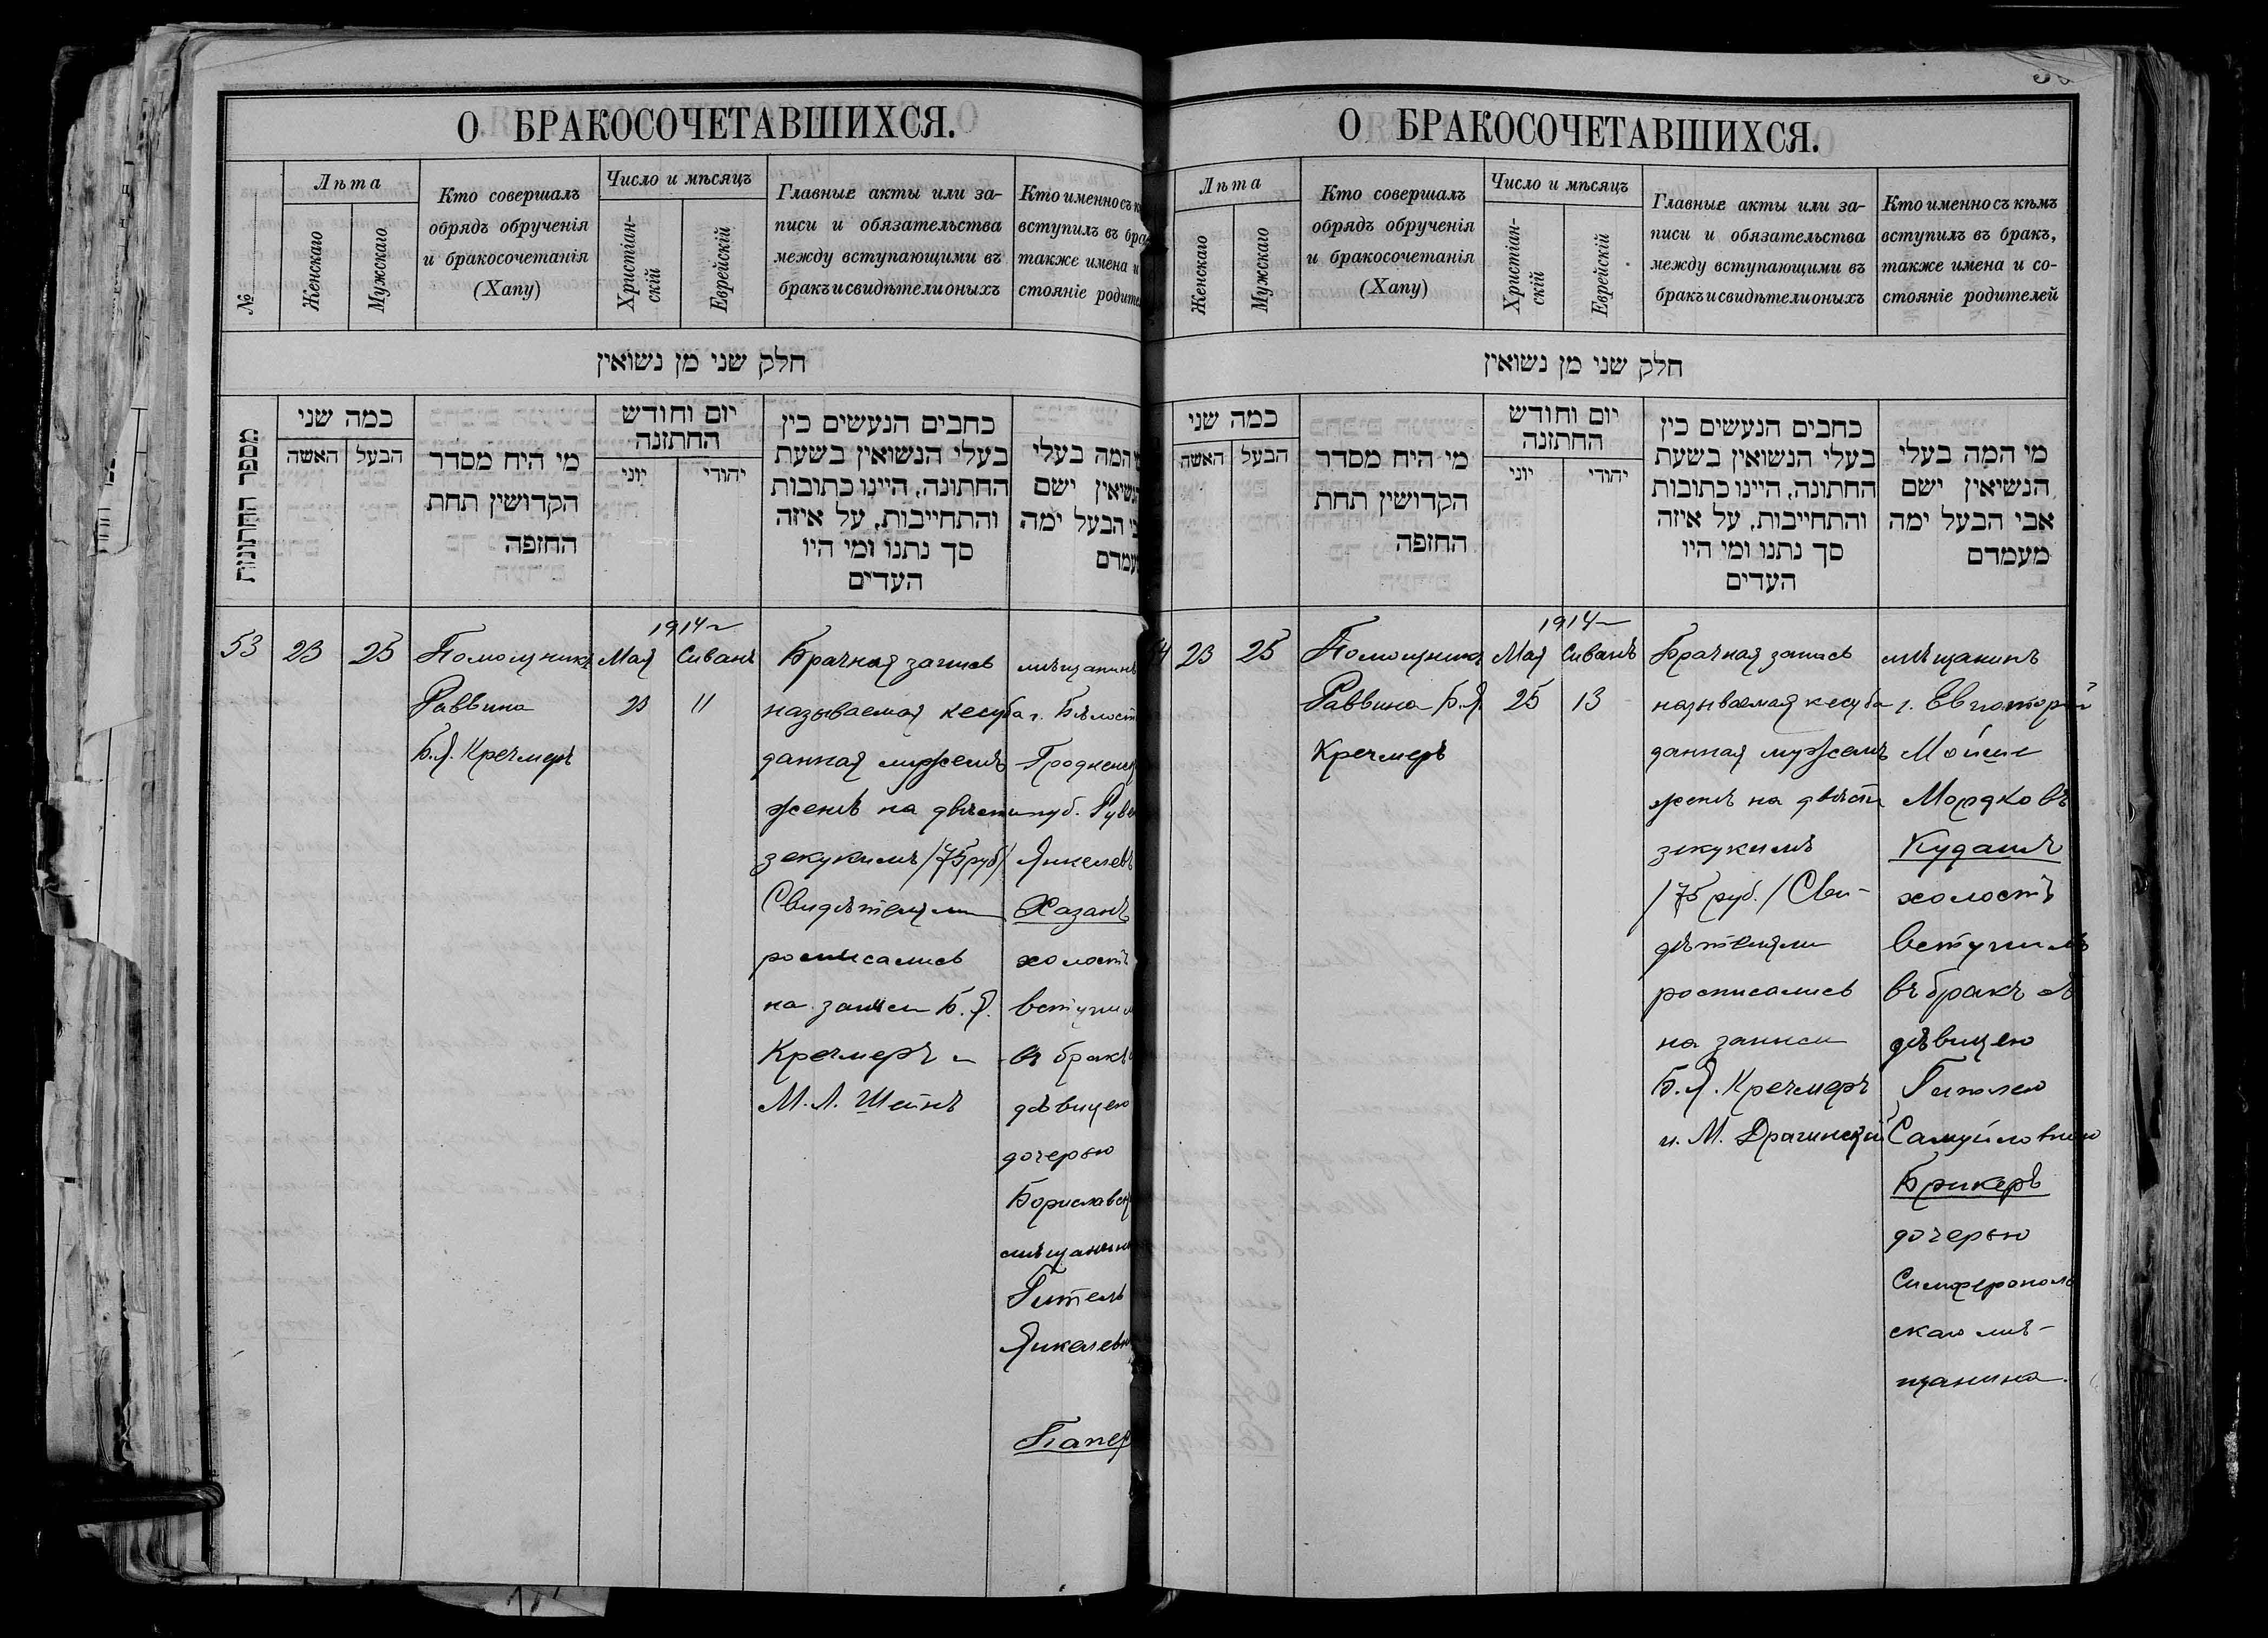 О БРАКОСОЧЕТАВШИХСЯ.
№
Лѣта
Женскаго
Мужскаго
Кто совершалъ
обрядъ обрученія
и бракосочетанія
(Хапу)
Число и мѣсяцъ
Христіан-
скій
Еврейскій
Главные акты или за-
писи и обязательства
между вступающими въ
бракъ и свидѣтели оныхъ
Кто именно съ
вступилъ въ бра
также имена и
стояніе родите
חלק שני מן נשואין
מספר החתונות
כמה שני
האשה
הבעל
מי היח מסדר
הקדושין תחת
החופה
יום וחודש
החתונה
יוני
יהודי
כחבים הנעשים כין
בעלי הנשואין בשעת
החתונה, היינו כתובות
והתחייבות, על איזה
סך נתנו ומי היו
העדים
המה בעלי
הנשיאין ישם
הבעל ימה
עמדם
53
23
25
Помощникъ
Раввина
Б.Я. Кречмеръ
1914 г.
Мая
23
Сиванъ
11
Брачная запись
называемая кесуба
данная мужемъ
женѣ на двѣсти
зекукимъ /75 руб/
Свидѣтелями
росписались
на записи Б.Я.
Кречмеръ и
М. Л. Шейнъ
мѣщанинъ
г. Бѣлост
Гродненск
губ. Рувен
Янкелевъ
Хазанъ
холостъ
вступил
въ бракъ
дѣвицею
дочерью
Бориславск
мѣщанин
Гитель
Янкелевн
Папер
О БРАКОСОЧЕТАВШИХСЯ.
Лѣта
Женскаго
Мужскаго
Кто совершалъ
обрядъ обрученія
и бракосочетанія
(Хапу)
Число и мѣсяцъ
Христіан-
скій
Еврейскій
Главные акты или за-
писи и обязательства
между вступающими въ
бракъ и свидѣтели оныхъ
Кто именно съ кѣмъ
вступилъ въ бракъ,
также имена и со-
стояніе родителей
חלק שני מן נשואין
כמה שני
האשה
הבעל
מי היח מסדר
הקדושין תחת
החופה
יום וחודש
החתונה
יוני
יהודי
כחבים הנעשים כין
בעלי הנשואין בשעת
החתונה, היינו כתובות
והתחייבות, על איזה
סך נתנו ומי היו
העדים
מי המה בעלי
הנשיאין ישם
אבי הבעל ימה
מעמדם
4
23
25
Помощникъ
Раввина Б.Я.
Кречмеръ
1914 г.
Мая
25
Сиванъ
13
Брачная запись
называемая кесуба
данная мужемъ
женѣ на двѣсти
зекукимъ
/75 руб./ Сви-
дѣтелями
росписались
на записи
Б.Я. Кречмеръ
и М. Драчинскій
мѣщанинъ
г. Евпаторій
Мойше
Мордковъ
Кудашъ
холостъ
вступилъ
въ бракъ съ
дѣвицею
Гителею
Самуйловною
Брикеръ
дочерью
Симферополь
скаго мѣ-
щанина.